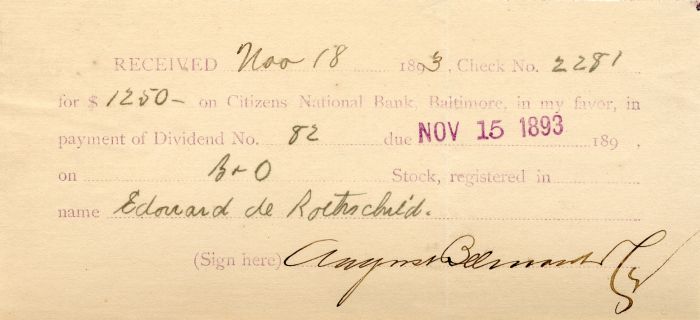 RECEIVED Nov 18 1893, Check No. 2281
for $ 1250- on Citizens National Bank, Baltimore, in my favor, in
payment of Dividend No. 82 due NOV 15 1893 189 .
on B & O Stock, registered in
name Edouard de Rothschild.
(Sign here) August Belmont & Co